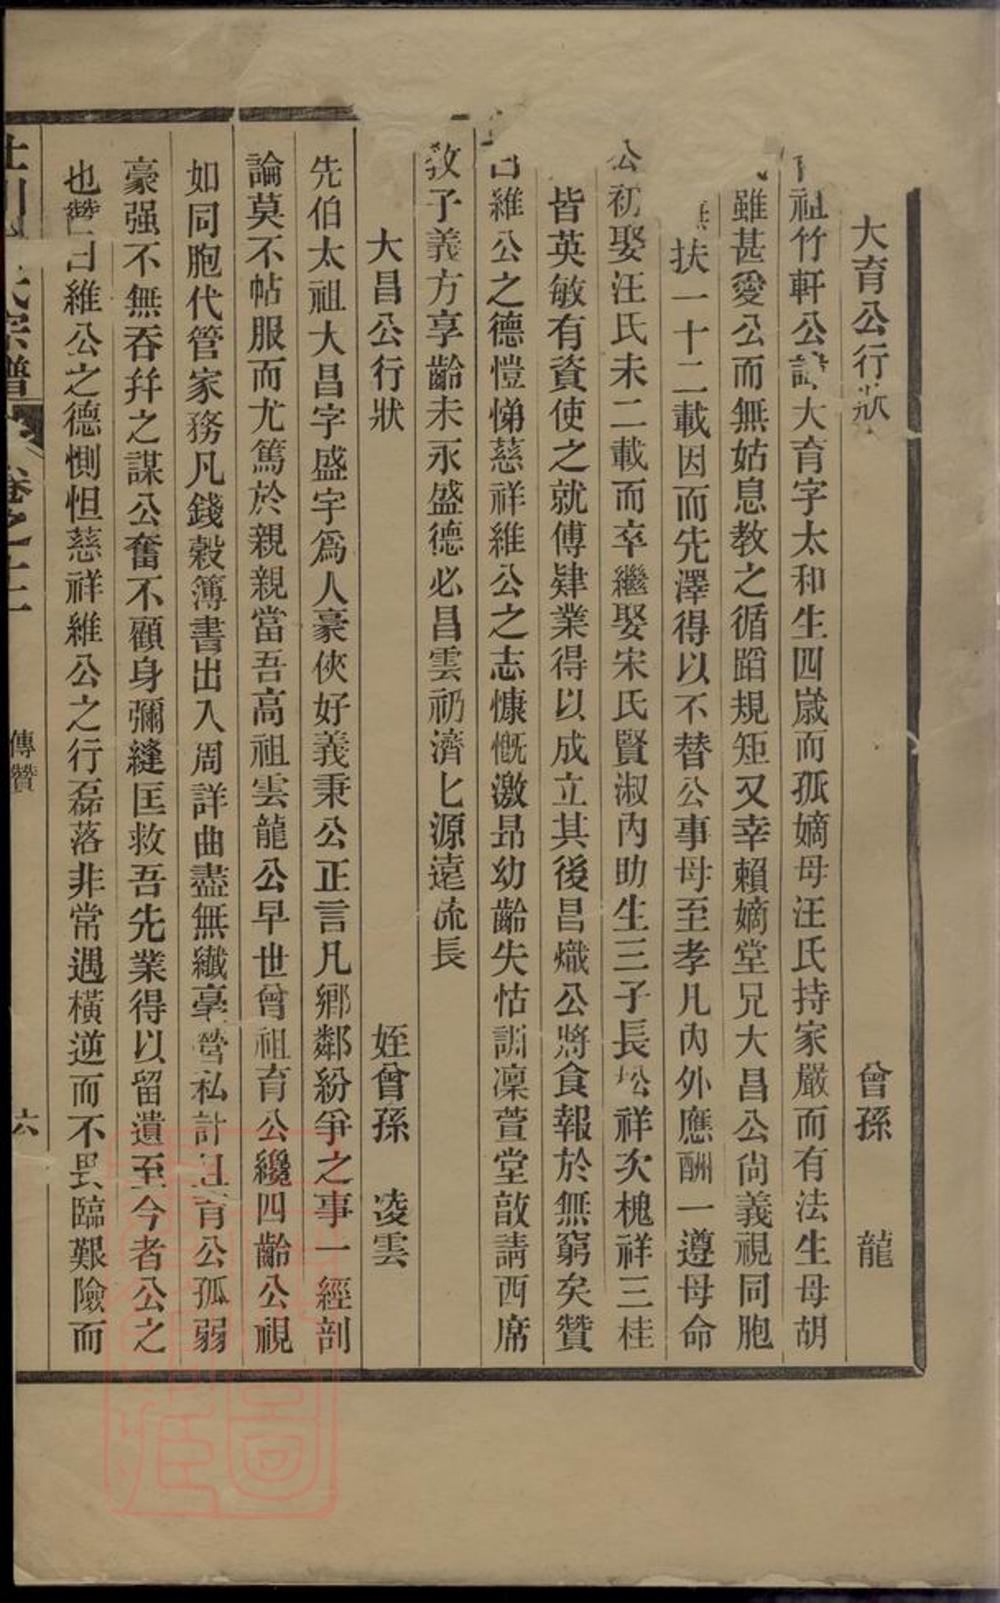 大育公行狀 曾孫 龍
祖竹軒公諱大育字太和生四歲而孤嫡母汪氏持家嚴而有法生母胡
雖甚愛公而無姑息教之循蹈規矩又幸賴嫡堂兄大昌公尚義視同胞
扶一十二載因而先澤得以不替公事母至孝凡內外應酬一遵母命
公初娶汪氏未二載而卒繼娶宋氏賢淑內助生三子長松祥次槐祥三桂
皆英敏有資使之就傅肄業得以成立其後昌熾公將食報於無窮矣贊
曰維公之德愷悌慈祥維公之志慷慨激昂幼齡失怙訓凜萱堂敬請西席
教子義方享齡未永盛德必昌雲礽濟匕源遠流長
大昌公行狀 姪曾孫 凌雲
先伯太祖大昌字盛宇爲人豪俠好義秉公正言凡鄉鄰紛爭之事一經剖
論莫不帖服而尤篤於親親當吾高祖雲龍公早世曾祖育公纔四齡公視
如同胞代管家務凡錢穀簿書出入周詳曲盡無纖毫營私計且育公孤弱
豪强不無吞并之謀公奮不顧身彌縫匡救吾先業得以留遺至今者公之
也贊曰維公之德惻怛慈祥維公之行磊落非常遇橫逆而不畏臨艱險而
氏宗譜 卷之二 傳贊 六